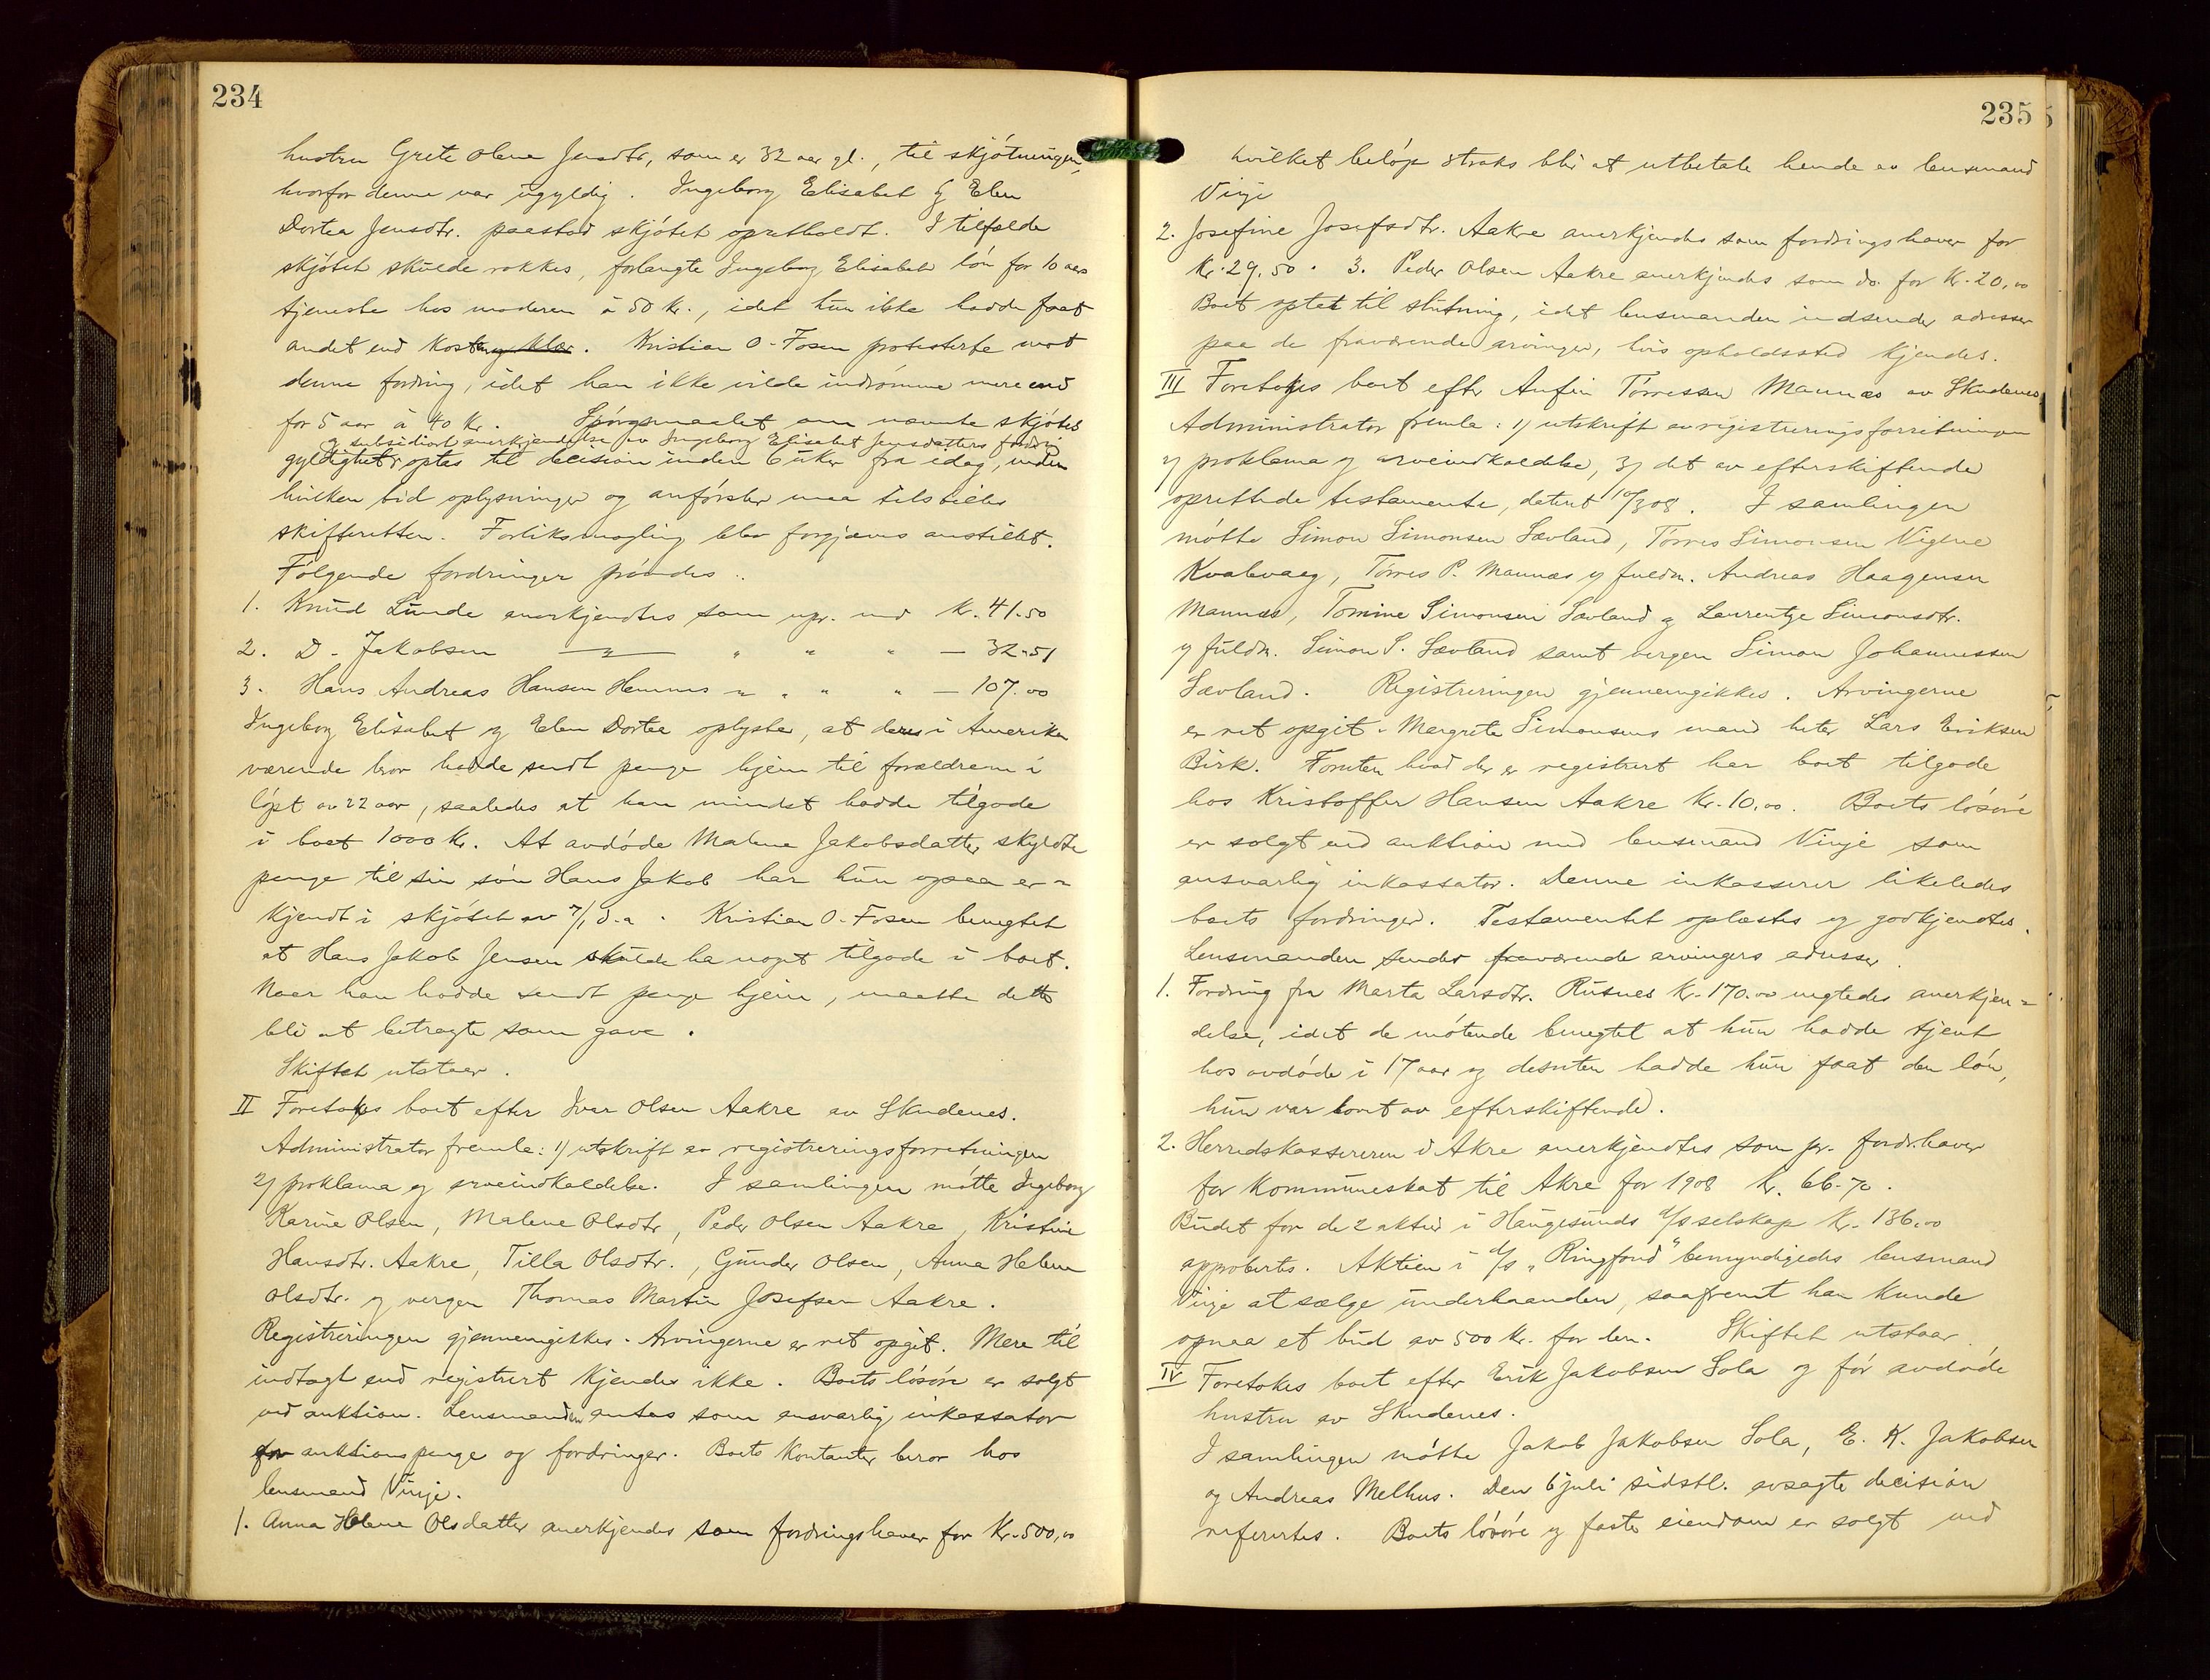 234
hustru Grete Olene Jensdtr., som er 32 aar gl., til skjøtningen,
hvorfor denne var ugyldig. Ingeborg Elisabet og Elen
Dortea Jensdtr. paastod skjøtet opretholdt. I tilfælde
skjøtet skulde rokkes, forlangte Ingeborg Elisabet løn for 10 aars
tjeneste hos moderen à 50 kr., idet hun ikke hadde faat
andet end kost og klær. Kristian O. Fosen protesterte mot
denne fordring, idet han ikke vilde indrømme mere end
for 5 aar à 40 kr. Spørgsmaalet om nævnte skjøtes
og subsidiært anerkjendelse av Ingeborg Elisabet Jensdatters fordring
gyldighet optas til decision inden 6 uker fra idag, inden
hvilken tid oplysninger og anførsler maa tilstilles
skifteretten. Forliksmægling blev forgjæves anstillet.
Følgende fordringer prøvdes:
1. Knud Lunde anerkjendtes som upr. med kr. 41.50
2. D. Jakobsen —"— " " " — 32.51
3. Hans Andreas Hansen Hemnes " " " " — 107.00
Ingeborg Elisabet og Elen Dortea oplyste, at deres i Amerika
værende bror hadde sendt penge hjem til forældrene i
løpet av 22 aar, saaledes at han mindst hadde tilgode
i boet 1000 kr. At avdøde Malene Jakobsdatter skyldte
penge til sin søn Hans Jakob har hun ogsaa er-
kjendt i skjøtet av 7/1 d.a. Kristian O. Fosen benegtet
at Hans Jakob Jensen skulde ha noget tilgode i boet.
Naar han hadde sendt penge hjem, maatte dette
bli at betragte som gave.
Skiftet utstaar.
II Foretokes boet efter Iver Olsen Aakre av Skudenes.
Administrator fremla: 1) utskrift av registreringsforretningen
2) proklama og arveindkaldelse. I samlingen møtte Ingeborg
Karine Olsen, Malene Olsdtr., Peder Olsen Aakre, Kristine
Hansdtr. Aakre, Tilla Olsdtr., Gunder Olsen, Anna Helene
Olsdtr. og vergen Thomas Martin Josefsen Aakre.
Registreringen gjennemgikkes. Arvingerne er ret opgit. Mere til
indtægt end registrert kjendes ikke. Boets løsøre er solgt
ved auktion. Lensmanden antas som ansvarlig inkassator
for auktionspenge og fordringer. Boets kontanter beror hos
lensmand Vinje.
1. Anna Helene Olsdatter anerkjendes som fordringshaver for kr. 500,00
235
hvilket beløp straks blir at utbetale hende av lensmand
Vinje
2. Josefine Josefsdtr. Aakre anerkjendes som fordringshaver for
kr. 29.50. 3. Peder Olsen Aakre anerkjendes som do. for kr. 20,00
Boet optet til slutning, idet lensmanden indsender adresser
paa de fraværende arvinger, hvis opholdssted kjendes.
III Foretokes boet efter Anfin Tørressen Mannæs av Skudenes
Administrator fremla: 1) utskrift av registreringsforretningen
2) proklama og arveindkaldelse, 3) det av efterskiftende
oprettede testamente, datert 10/3 08. I samlingen
møtte Simon Simonsen Sævland, Tørres Simonsen Vigene
Kvalevaag, Tørres P. Mannæs og fuldm. Andreas Haagensen
Mannæs, Tomine Simonsen Sævland og Laurentze Simonsdtr.
og fuldm. Simon S. Sævland samt vergen Simon Johannessen
Sævland. Registreringen gjennemgikkes. Arvingerne
er ret opgit. Margrete Simonsens mand heter Lars Eriksen
Birk. Foruten hvad der er registrert har boet tilgode
hos Kristoffer Hansen Aakre kr. 10,00. Boets løsøre
er solgt ved auktion med lensmand Vinje som
ansvarlig inkassator. Denne inkasserer likeledes
boets fordringer. Testamentet oplæstes og godkjendtes.
Lensmanden sender fraværende arvingers adresser.
1. Fordring fra Marta Larsdtr. Rusnes kr. 170.00 negtedes anerkjen-
delse, idet de møtende benegtet at hun hadde tjent
hos avdøde i 17 aar og desuten hadde hun faat den løn,
hun var lovt av efterskiftende.
2. Herredskassereren i Akre anerkjendtes som pr. fordr.haver
for kommuneskat til Akre for 1908 kr. 66.70.
Budet for de 2 aktier i Haugesunds d/s selskap kr. 136.00
approbertes. Aktien i d/s "Ringfond" bemyndigedes lensmand
Vinje at sælge underhaanden, saafremt han kunde
opnaa et bud av 500 kr. for den. Skiftet utstaar.
IV Foretokes boet efter Erik Jakobsen Sola og før avdøde
hustru av Skudenes.
I samlingen møtte Jakob Jakobsen Sola, E. K. Jakobsen
og Andreas Melhus. Den 6 juli sidstl. avsagte decision
refertes. Boets løsøre og faste eiendom er solgt ved